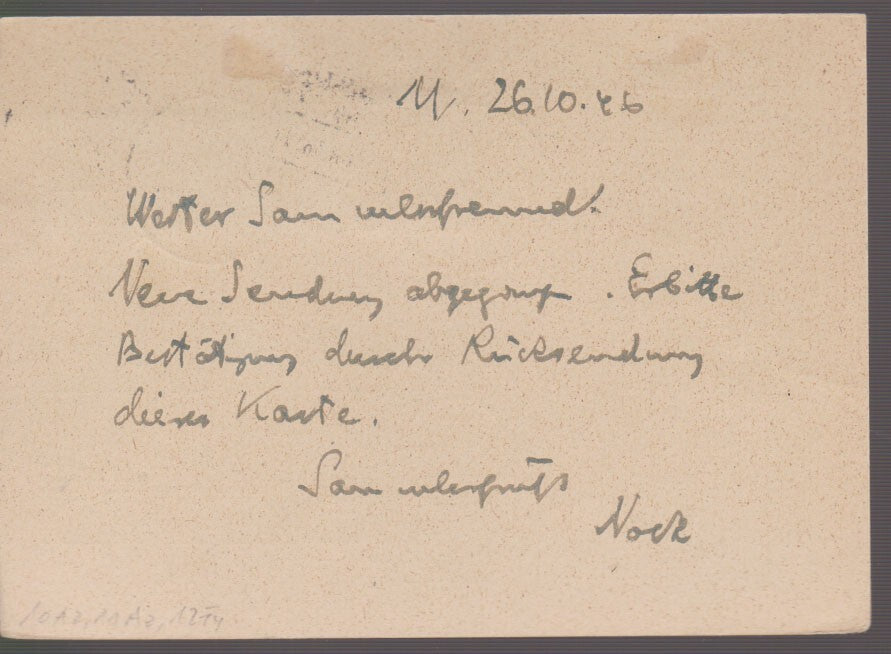 M. 26.10.46
Werter Sammlerfreund!
Neue Sendung abgegang. Erbitte
Bestätigung durch Rücksendung
dieser Karte.
Sammlergruß
Nock